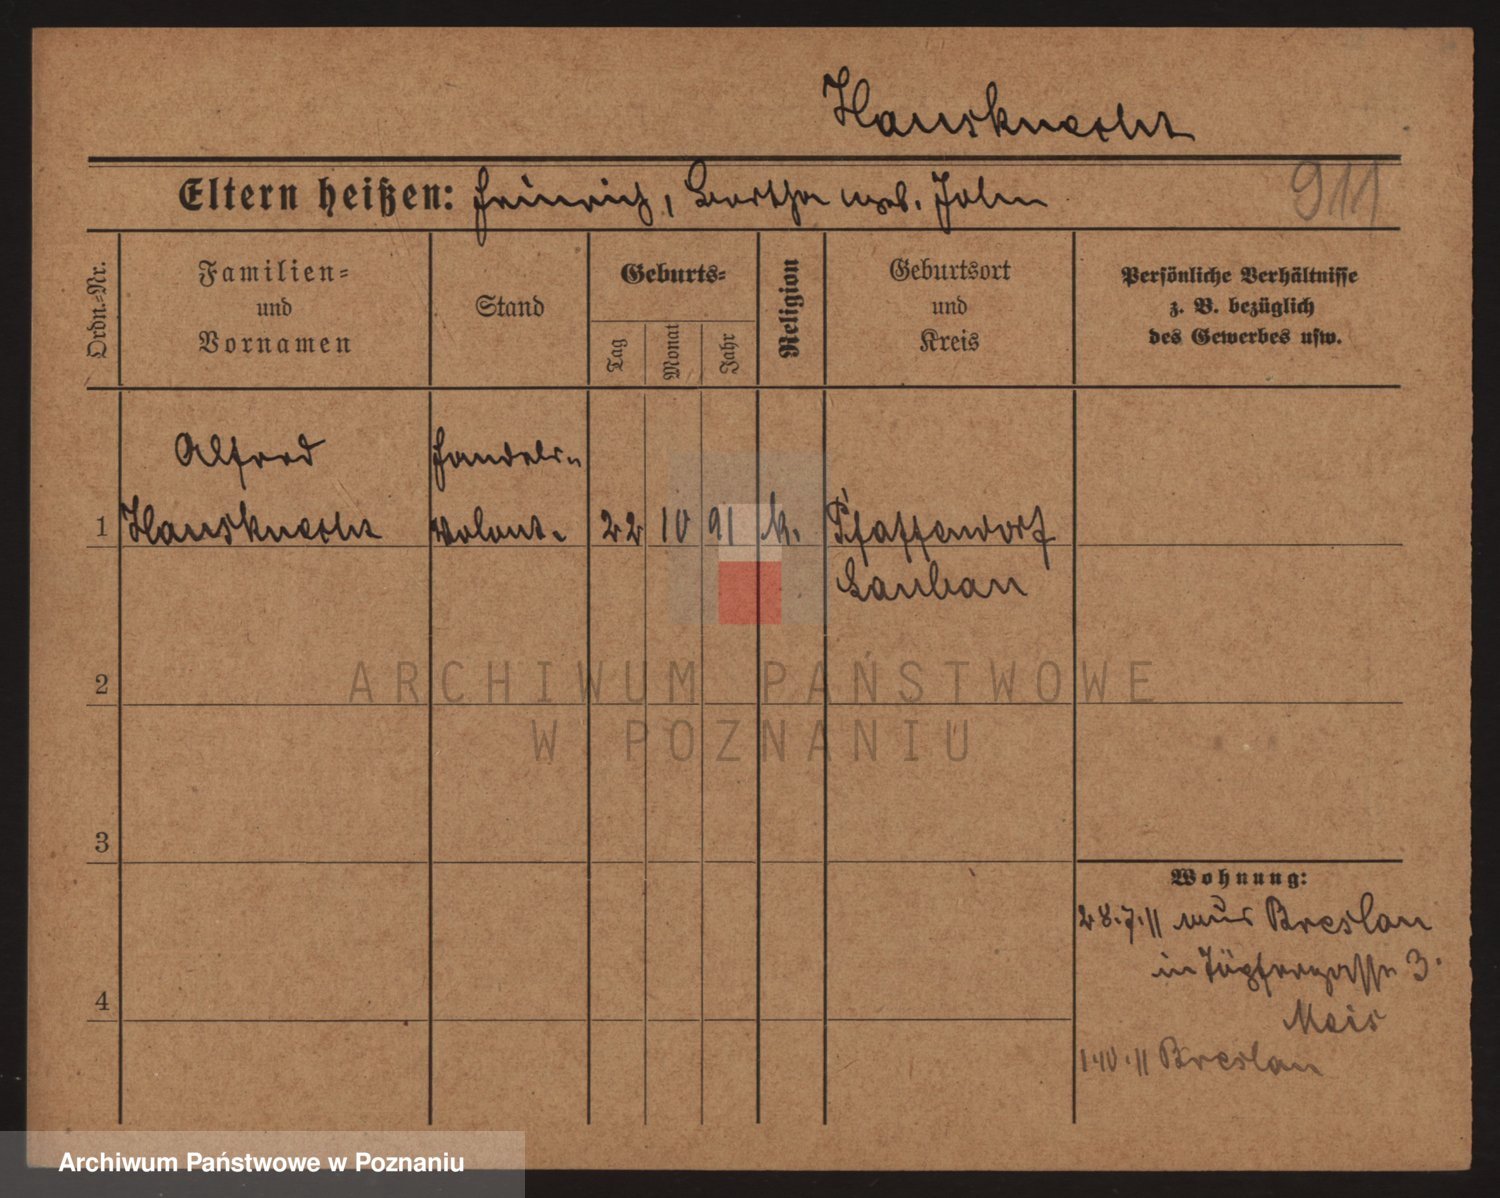 Hausknecht
Eltern heißen: Heinrich, Bertha geb. John
911
Ordn.-Nr.
Familien-
und
Vornamen
Stand
Geburts-
Tag
Monat
Jahr
Religion
Geburtsort
und
Kreis
Persönliche Verhältnisse
z. B. bezüglich
des Gewerbes usw.
Alfred Handels-
1 Hausknecht Volont. 22 10 91 k. Pfaffendorf
Lauban
2
ARCHIWUM PAŃSTWOWE
W POZNANIU
3
Wohnung:
28.7.11 aus Breslau
in Töpfergasse 3.
4
Meis
1.10.11 Breslau
Archiwum Państwowe w Poznaniu